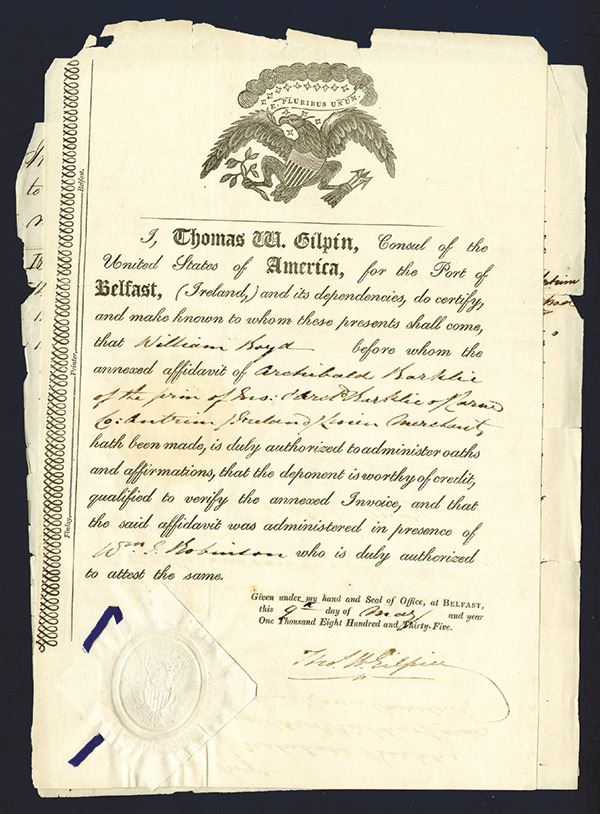 E. PLURIBUS UNUM.
I, Thomas W. Gilpin, Consul of the
United States of America, for the Port of
Belfast, (Ireland,) and its dependencies, do certify,
and make known to whom these presents shall come,
that William Boyd before whom the
annexed affidavit of Archibald Barklie
of the firm of Jno: & Archd Barklie of Larne
Co: Antrim Ireland Linen Merchant,
hath been made, is duly authorized to administer oaths
and affirmations, that the deponent is worthy of credit,
qualified to verify the annexed Invoice, and that
the said affidavit was administered in presence of
Wm J. Robinson who is duly authorized
to attest the same.
Given under my hand and Seal of Office, at BELFAST,
this 9th day of May and year
One Thousand Eight Hundred and Thirty-Five.
Thos. W. Gilpin
Finlay, Printer, Belfast.
to